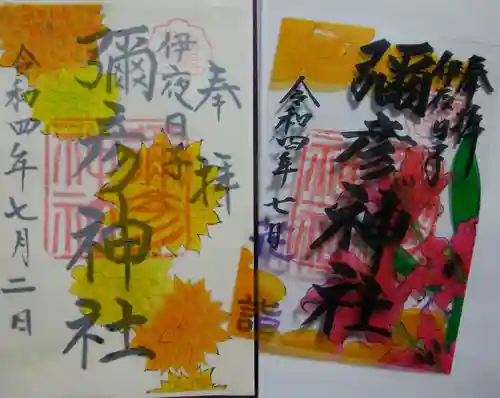 奉拝
伊夜日子
彌彦神社
令和四年七月二日
奉拝
伊夜日子
彌彦神社
令和四年七月
詣